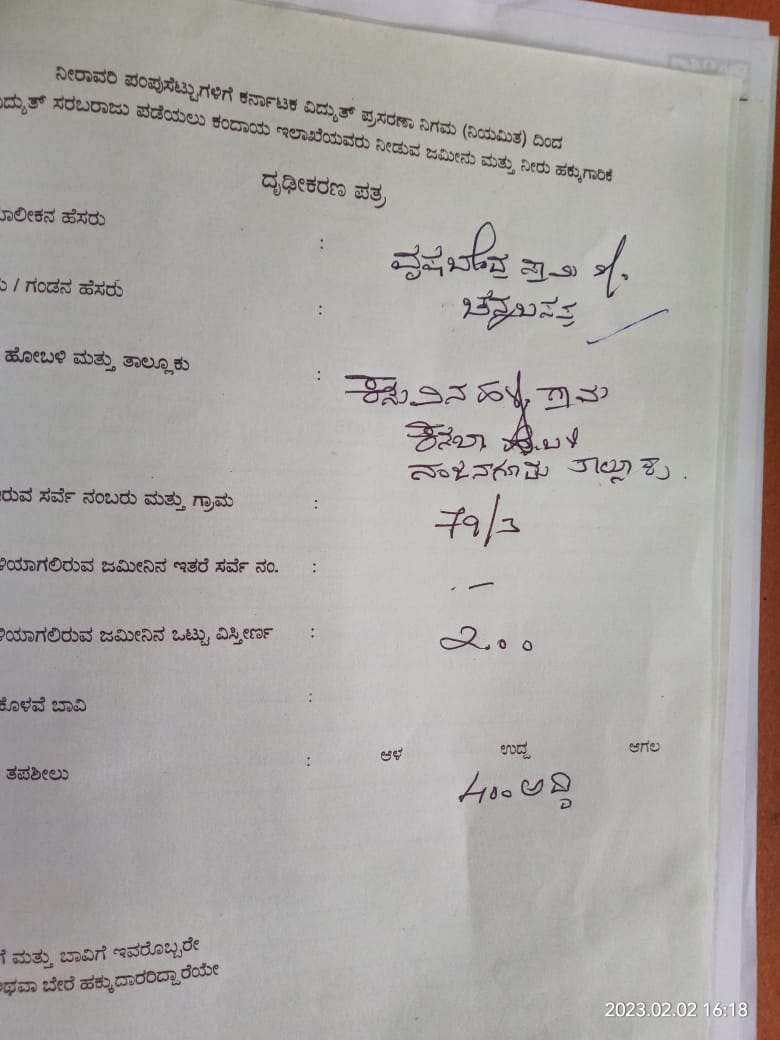 ನೀರಾವರಿ ಪಂಪುಸೆಟ್ಟುಗಳಿಗೆ ಕರ್ನಾಟಕ ವಿದ್ಯುತ್ ಪ್ರಸರಣಾ ನಿಗಮ (ನಿಯಮಿತ) ದಿಂದ
ದ್ಯುತ್ ಸರಬರಾಜು ಪಡೆಯಲು ಕಂದಾಯ ಇಲಾಖೆಯವರು ನೀಡುವ ಜಮೀನು ಮತ್ತು ನೀರು ಹಕ್ಕುಗಾರಿಕೆ
ದೃಢೀಕರಣ ಪತ್ರ
ಾಲೀಕನ ಹೆಸರು : ವೃಷಬೇಂದ್ರ ಸ್ವಾಮಿ
/ ಗಂಡನ ಹೆಸರು : ಚೆನ್ನಬಸಪ್ಪ
ಹೋಬಳಿ ಮತ್ತು ತಾಲ್ಲೂಕು : ಗ್ರಾಮ
ನಂಜನಗೂಡು ತಾಲ್ಲೂಕು.
ರುವ ಸರ್ವೆ ನಂಬರು ಮತ್ತು ಗ್ರಾಮ : 79/3
ಳಿಯಾಗಲಿರುವ ಜಮೀನಿನ ಇತರೆ ಸರ್ವೆ ನಂ. : -
ಳಿಯಾಗಲಿರುವ ಜಮೀನಿನ ಒಟ್ಟು ವಿಸ್ತೀರ್ಣ : ೨.೦೦
ಕೊಳವೆ ಬಾವಿ :
ತಪಶೀಲು : ಆಳ ಉದ್ದ ಅಗಲ
400 ಅಡಿ
ಗೆ ಮತ್ತು ಬಾವಿಗೆ ಇವರೊಬ್ಬರೇ
ಥವಾ ಬೇರೆ ಹಕ್ಕುದಾರರಿದ್ದಾರೆಯೇ
2023.02.02 16:18